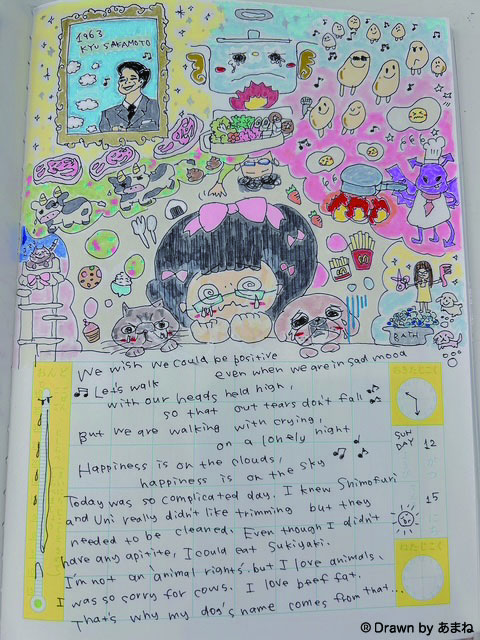 1963
KYU SAKAMOTO
BATH
We wish we could be positive
even when we are in sad mood
Let's walk
with our heads held high,
so that out tears don't fall
But we are walking with crying,
on a lonely night
Happiness is on the clouds,
happiness is on the sky
Today was so complicated day. I knew Shimofuri
and Uni really didn't like trimming but they
needed to be cleaned. Even though I didn't
have any apitite, I could eat Sukiyaki.
I'm not an "animal rights" but I love animals.
I was so sorry for cows. I love beef fat.
That's why my dog's name comes from that...
おんど
おきたじこく
SUN
DAY
12
15
ねたじこく
® Drawn by あまね